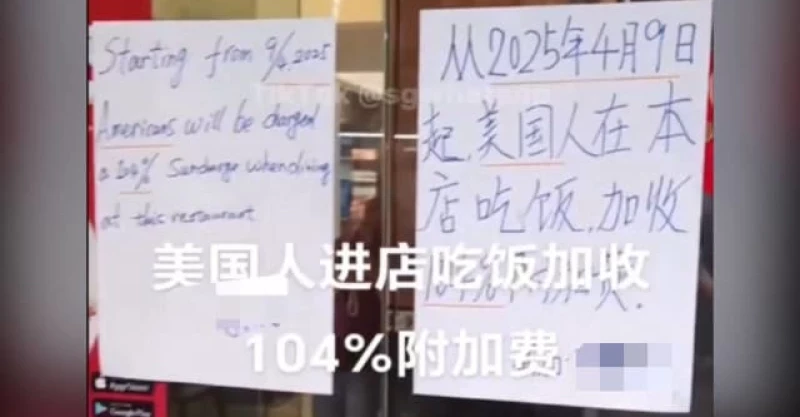 Starting from 9/4.2025
Americans will be charged
a 104% Surcharge when dining
at this restaurant
从2025年4月9日
起,美国人在本
店吃饭,加收
104%附加费.
美国人进店吃饭加收
104%附加费
App Store
Google Play